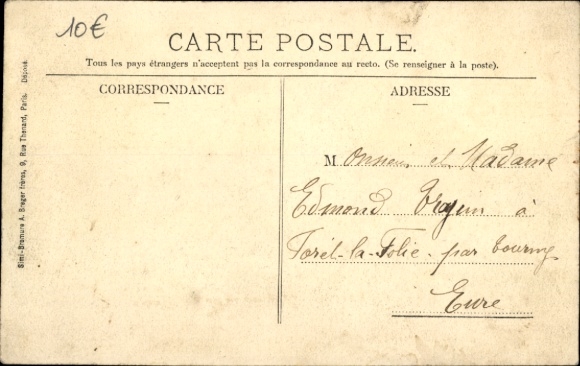 10€
CARTE POSTALE.
Tous les pays étrangers n'acceptent pas la correspondance au recto. (Se renseigner à la poste).
CORRESPONDANCE
ADRESSE
Monsieur et Madame
Edmond à
Forêt-la-Folie par Tourny
Eure
Simi-Bromure A. Breger frères, 9, Rue Thenard, Paris. Déposé